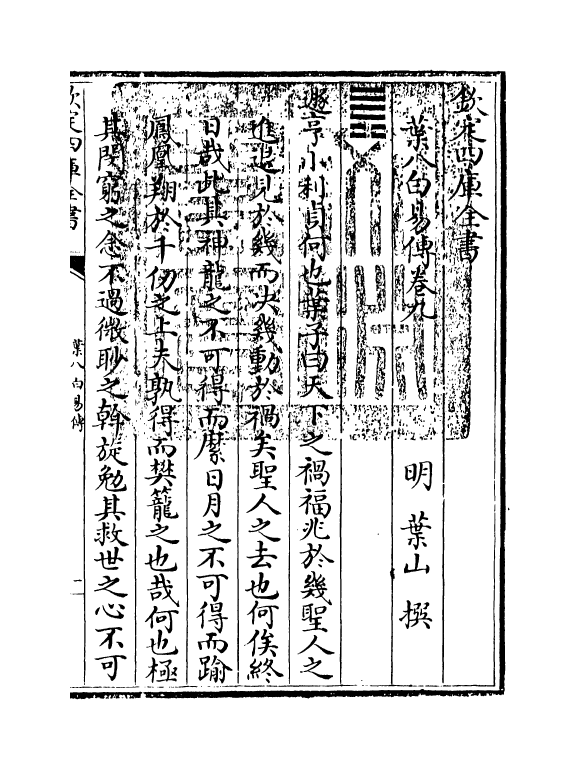 欽定四庫全書
葉八白易傳卷九
明 葉山 撰
䷠
遯亨小利貞何也葉子曰天下之禍福兆於幾聖人之
進退見於幾而決幾動於禍矣聖人之去也何俟終
日哉此其神龍之不可得而縻日月之不可得而踰
鳳凰翔於千仞之上夫孰得而樊籠之也哉何也極
其閔窮之念不過微眇之斡旋勉其救世之心不可
欽定四庫全書
葉八白易傳